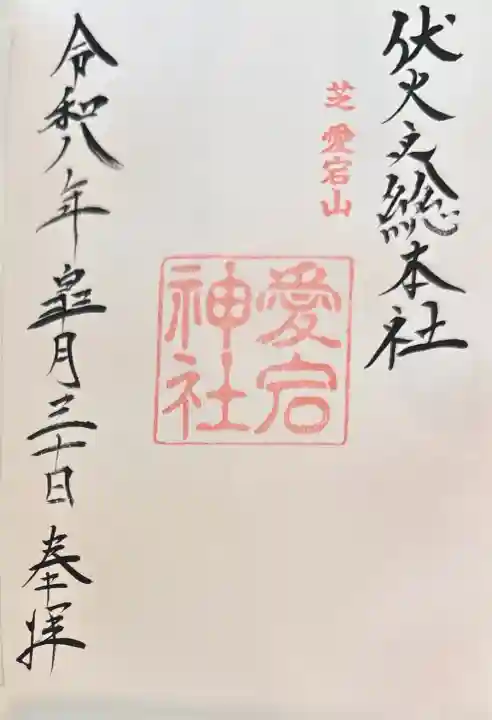 伏火之総本社
芝愛宕山
愛宕
神社
令和八年皐月三十日奉拝